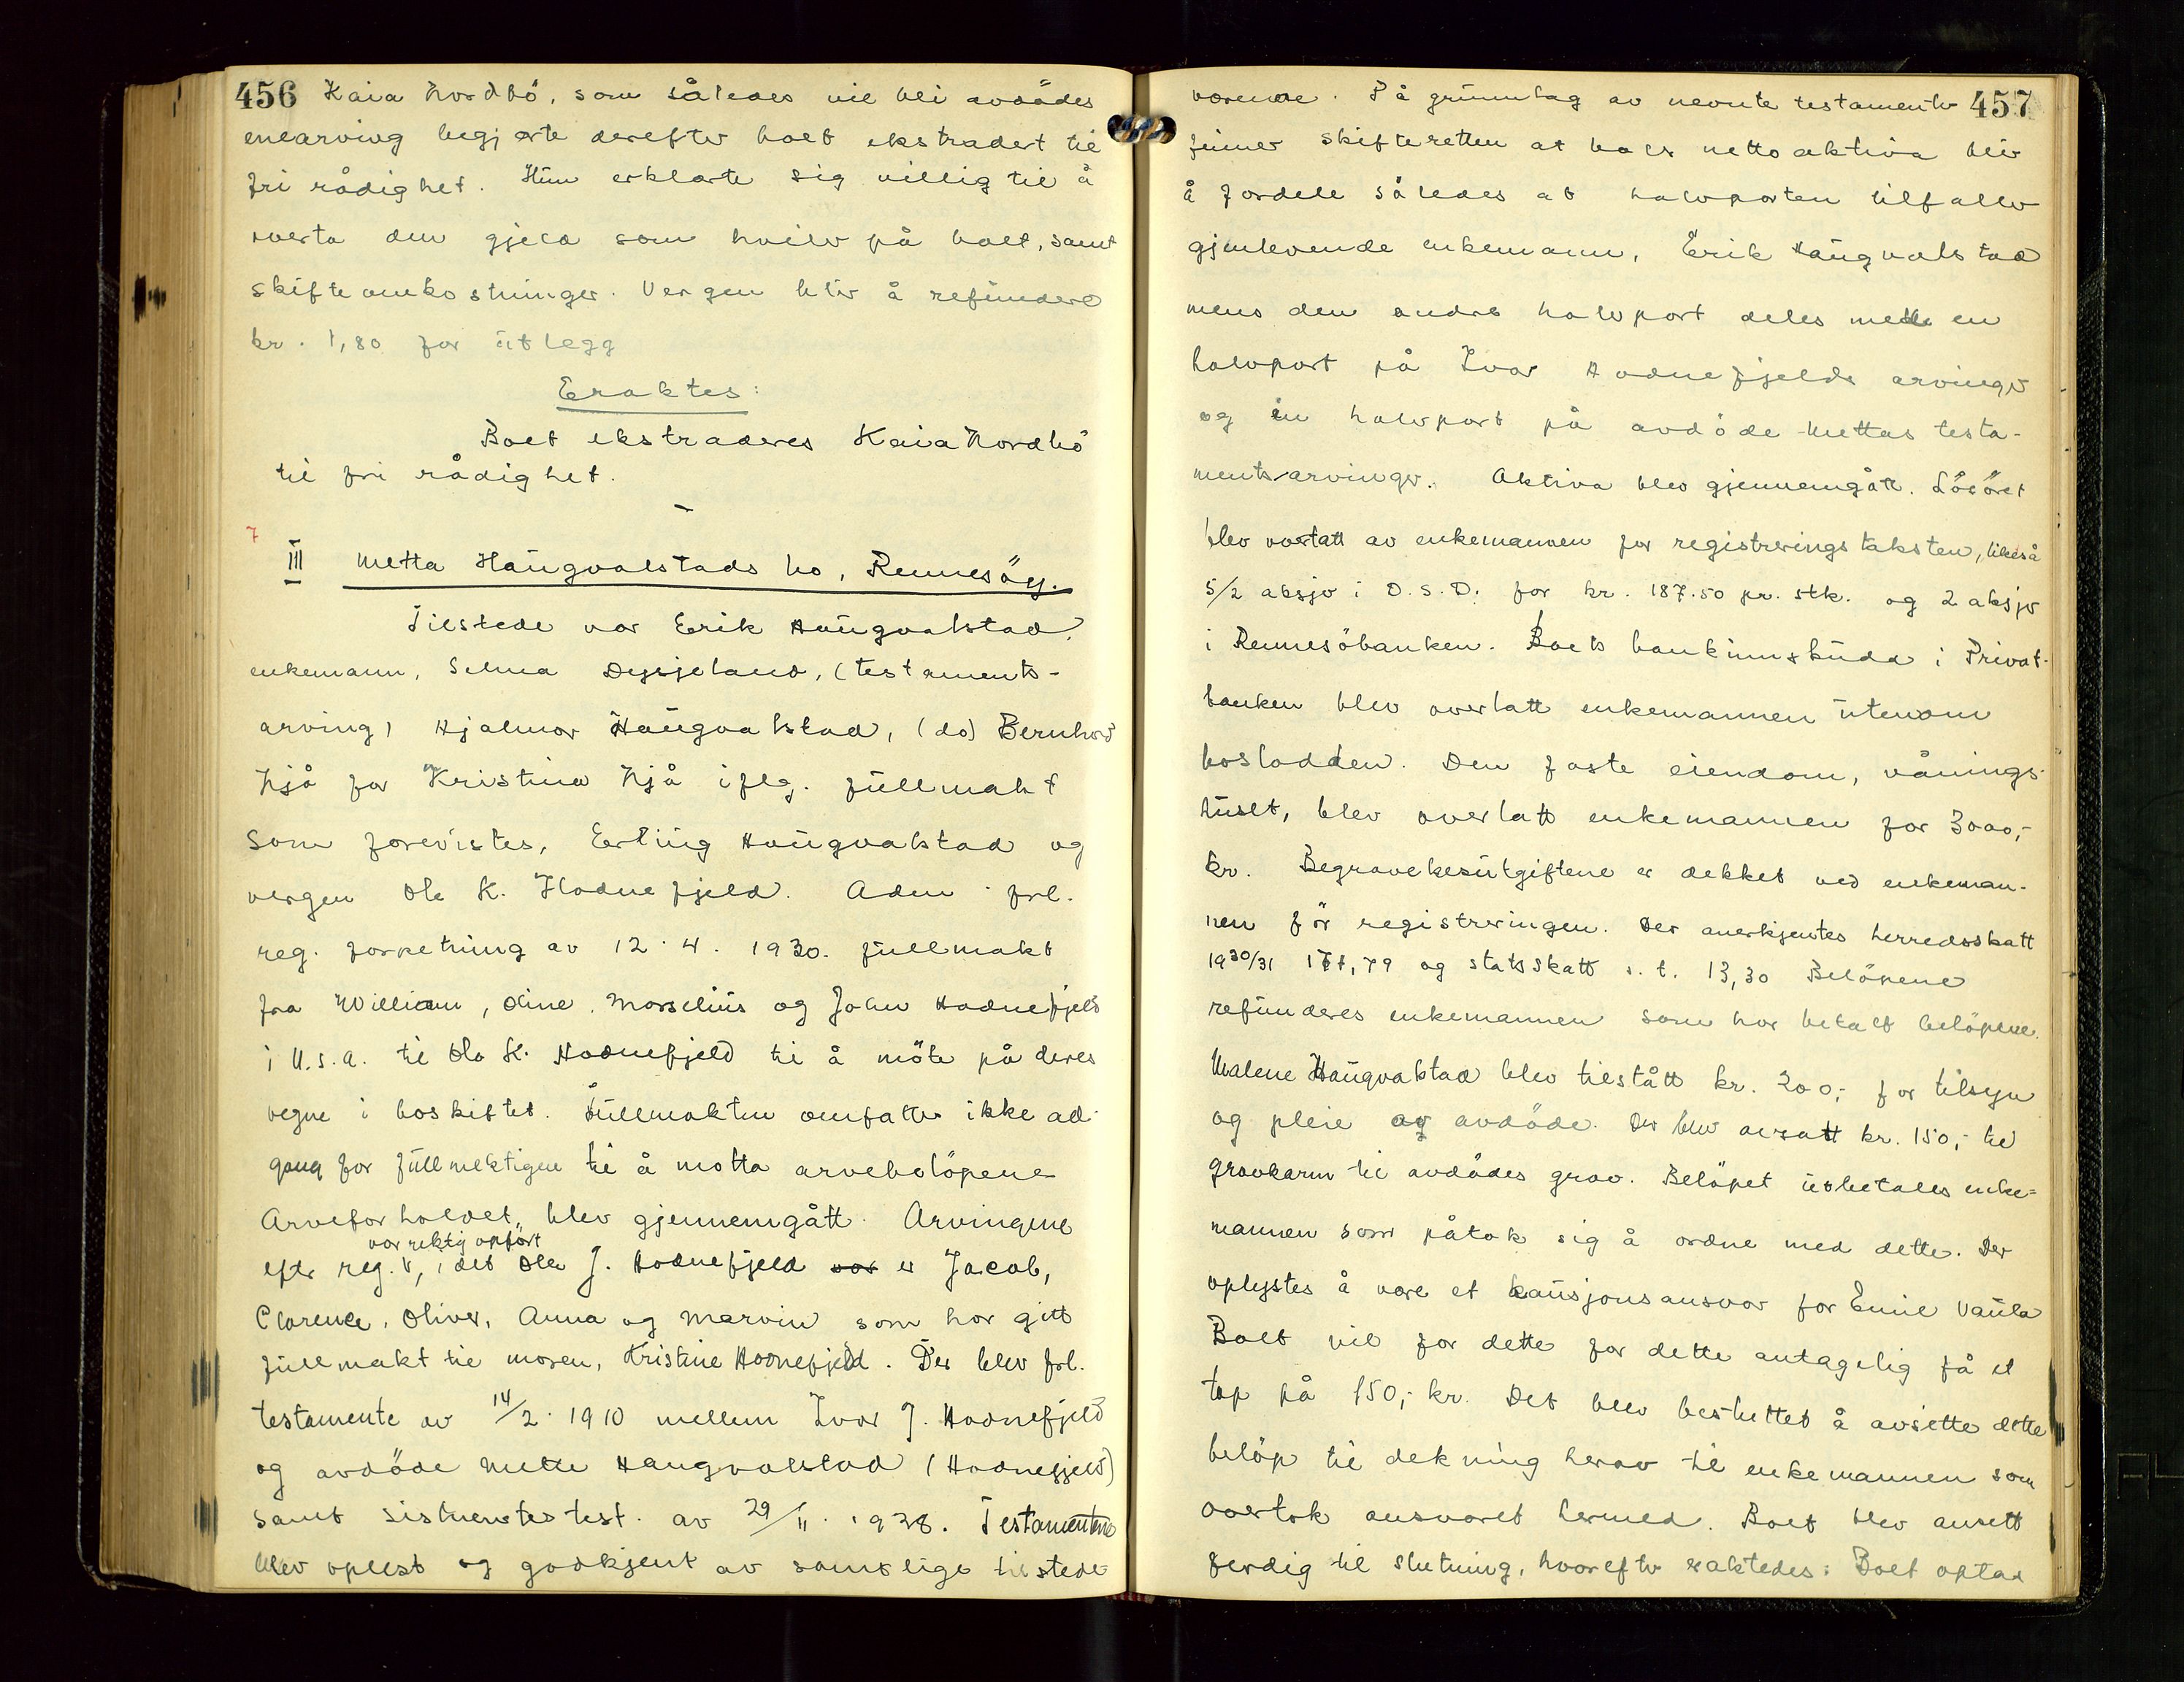 456 Kaia Nordbö, som således vil bli avdödes
enearving begjærte derefter boet ekstradert til
fri rådighet. Hun erklærte sig villig til å
overta den gjeld som hviler på boet, samt
skifteomkostninger. Vergen blir å refundere
kr. 1,80 for utlegg
Eraktes:
Boet ekstraderes Kaia Nordbö
til fri rådighet.
7
III Metta Haugvalstads bo, Rennesöy.
Tilstede var Erik Haugvalstad,
enkemann, Selma Dysjeland, (testaments-
arving) Hjalmar Haugvalstad, (do) Bernhard
Njå for Kristina Njå iflg. fullmakt
som forevistes, Erling Haugvalstad og
vergen Ole K. Hodnefjeld. Adm. frl.
reg. forretning av 12.4.1930. fullmakt
fra William, Oline, Marselius og John Hodnefjeld
i U.S.A. til Ole K. Hodnefjeld til å möte på deres
vegne i boskiftet. Fullmakten omfatter ikke ad-
gang for fullmektigen til å motta arvebelöpene
Arveforholdet blev gjennemgått. Arvingene
var riktig opfört
efter reg. V, idet Ole J. Hodnefjeld var er Jacob,
Clarence, Oliver, Anna og Marvin som har gitt
fullmakt til moren, Kristine Hodnefjeld. Der blev frl.
testamente av 14/2.1910 mellem Ivar J. Hodnefjeld
og avdöde Mette Haugvalstad (Hodnefjeld)
samt sistnevntes test. av 29/11.1928. Testamentene
blev oplest og godkjent av samtlige tilstede-
værende. På grunnlag av nevnte testamenter 457
finner skifteretten at boets netto aktiva blir
å fordele således at halvparten tilfaller
gjenlevende enkemann, Erik Haugvalstad
mens den andre halvpart deles med en
halvpart på Ivar Hodnefjelds arvinger
og en halvpart på avdöde Mettas testa-
mentsarvinger. Aktiva blev gjennemgått. Lösöret
blev overtatt av enkemannen for registreringstaksten, likeså
5/2 aksjer i D.S.D. for kr. 187.50 pr. stk. og 2 aksjer
i Rennesöbanken. Boets bankinnskudd i Privat-
banken blev overlatt enkemannen utenom
boslodden. Den faste eiendom, vånings-
huset, blev overlatt enkemannen for 3000,-
kr. Begravelsesutgiftene er dekket ved enkeman-
nen för registreringen. Der anerkjentes herredsskatt
1930/31 171,79 og statsskatt s. t. 13,30 Belöpene
refunderes enkemannen som har betalt belöpene.
Malene Haugvalstad blev tilstått kr. 200,- for tilsyn
og pleie av avdöde. Der blev avsatt kr. 150,- til
gravkarm til avdödes grav. Belöpet utbetales enke-
mannen som påtok sig å ordne med dette. Der
oplystes å være et kausjonsansvar for Emil Vaula
Boet vil for dette for dette antagelig få et
tap på 150,- kr. Det blev besluttet å avsette dette
belöp til dekning herav til enkemannen som
overtok ansvaret hermed. Boet blev ansett
ferdig til slutning, hvorefter eraktedes: Boet optas